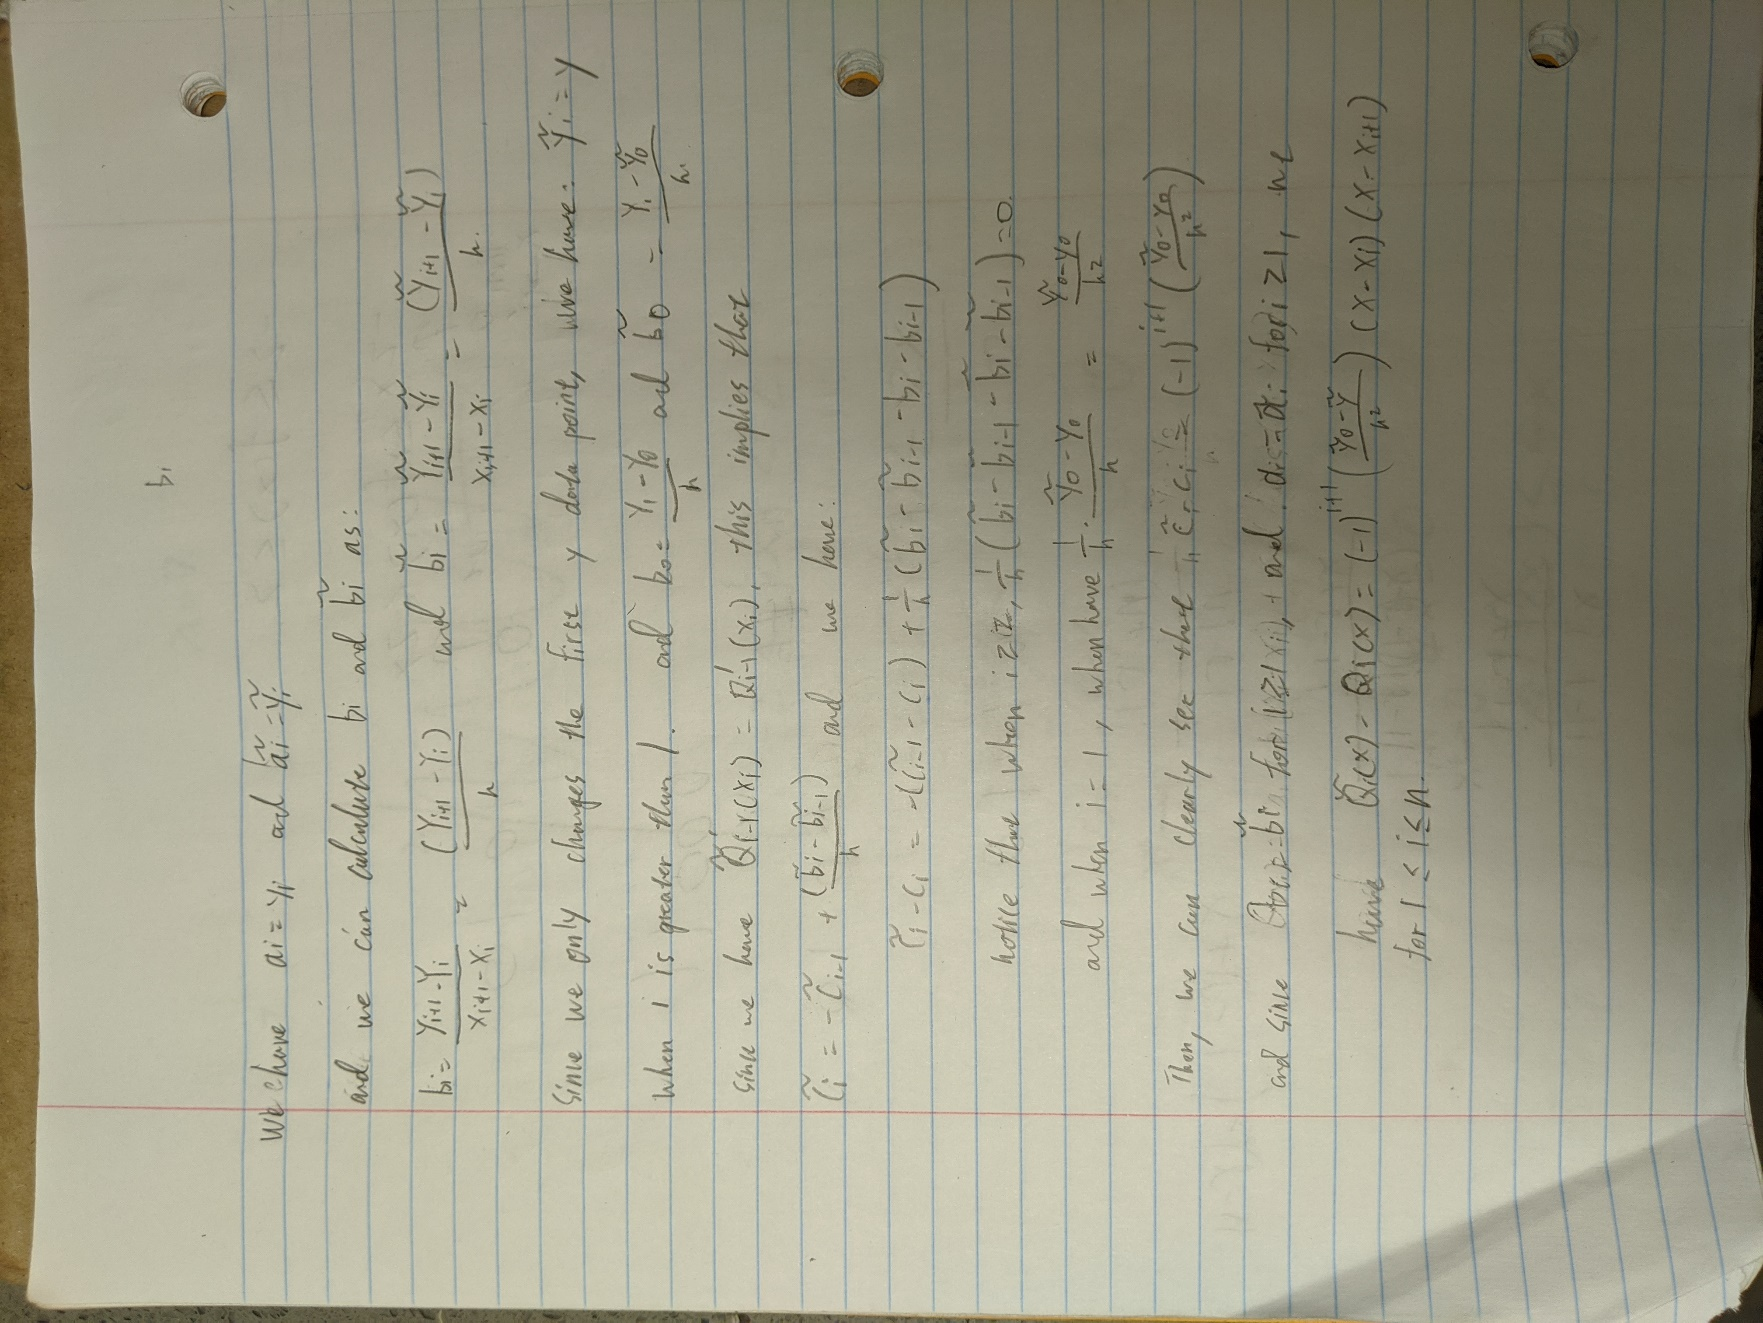 b₁
We have aᵢ = yᵢ and ãᵢ = ỹᵢ
and we can calculate bᵢ and b̃ᵢ as:
bᵢ = (yᵢ₊₁ - yᵢ)/(xᵢ₊₁ - xᵢ) = (yᵢ₊₁ - yᵢ)/h and b̃ᵢ = (ỹᵢ₊₁ - ỹᵢ)/(xᵢ₊₁ - xᵢ) = (ỹᵢ₊₁ - ỹᵢ)/h.
Since we only changes the first y data point, we have: ỹᵢ = y
when i is greater than 1. and b₀ = (y₁ - y₀)/h and b̃₀ = (y₁ - ỹ₀)/h
since we have Q̃'ᵢ₋₁(xᵢ) = Q'ᵢ₋₁(xᵢ), this implies that
c̃ᵢ = -c̃ᵢ₋₁ + (b̃ᵢ - b̃ᵢ₋₁)/h and we have:
c̃ᵢ - cᵢ = -(c̃ᵢ₋₁ - cᵢ) + 1/h (b̃ᵢ - b̃ᵢ₋₁ - bᵢ - bᵢ₋₁)
notice that when i ≥ 2, 1/h (b̃ᵢ - b̃ᵢ₋₁ - bᵢ - bᵢ₋₁) = 0.
and when i = 1, when have 1/h · (ỹ₀ - y₀)/h = (ỹ₀ - y₀)/h²
Then, we can clearly see that c̃ᵢ - cᵢ = (-1)ⁱ⁺¹ ((ỹ₀ - y₀)/h²)
and since b̃ᵢ = bᵢ for i ≥ 1, and ãᵢ = aᵢ for i ≥ 1, we
have Q̃ᵢ(x) - Qᵢ(x) = (-1)ⁱ⁺¹ ((ỹ₀ - y)/h²) (x - xᵢ)(x - xᵢ₊₁)
for 1 ≤ i ≤ n.